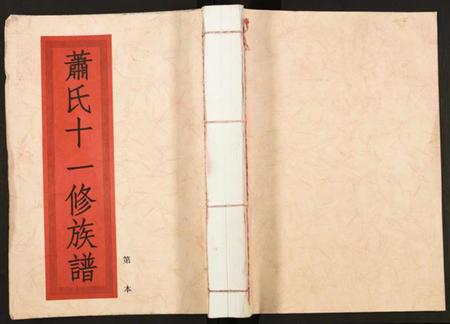 蕭氏十一修族譜
第 本